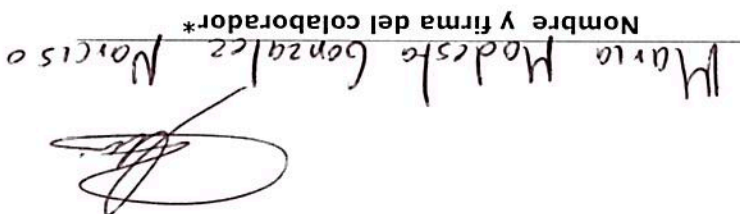 Maria Modesta Gonzalez Narciso
Nombre y firma del colaborador*